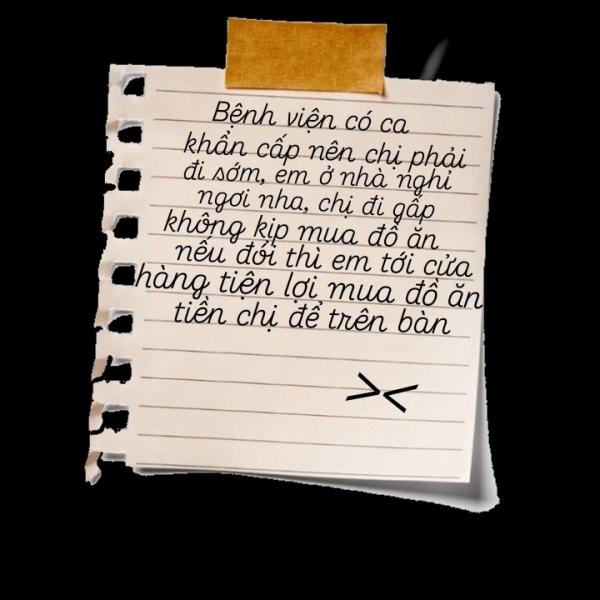 Bệnh viện có ca
khẩn cấp nên chị phải
đi sớm, em ở nhà nghỉ
ngơi nha, chị đi gấp
không kịp mua đồ ăn
nếu đói thì em tới cửa
hàng tiện lợi mua đồ ăn
tiền chị để trên bàn
><